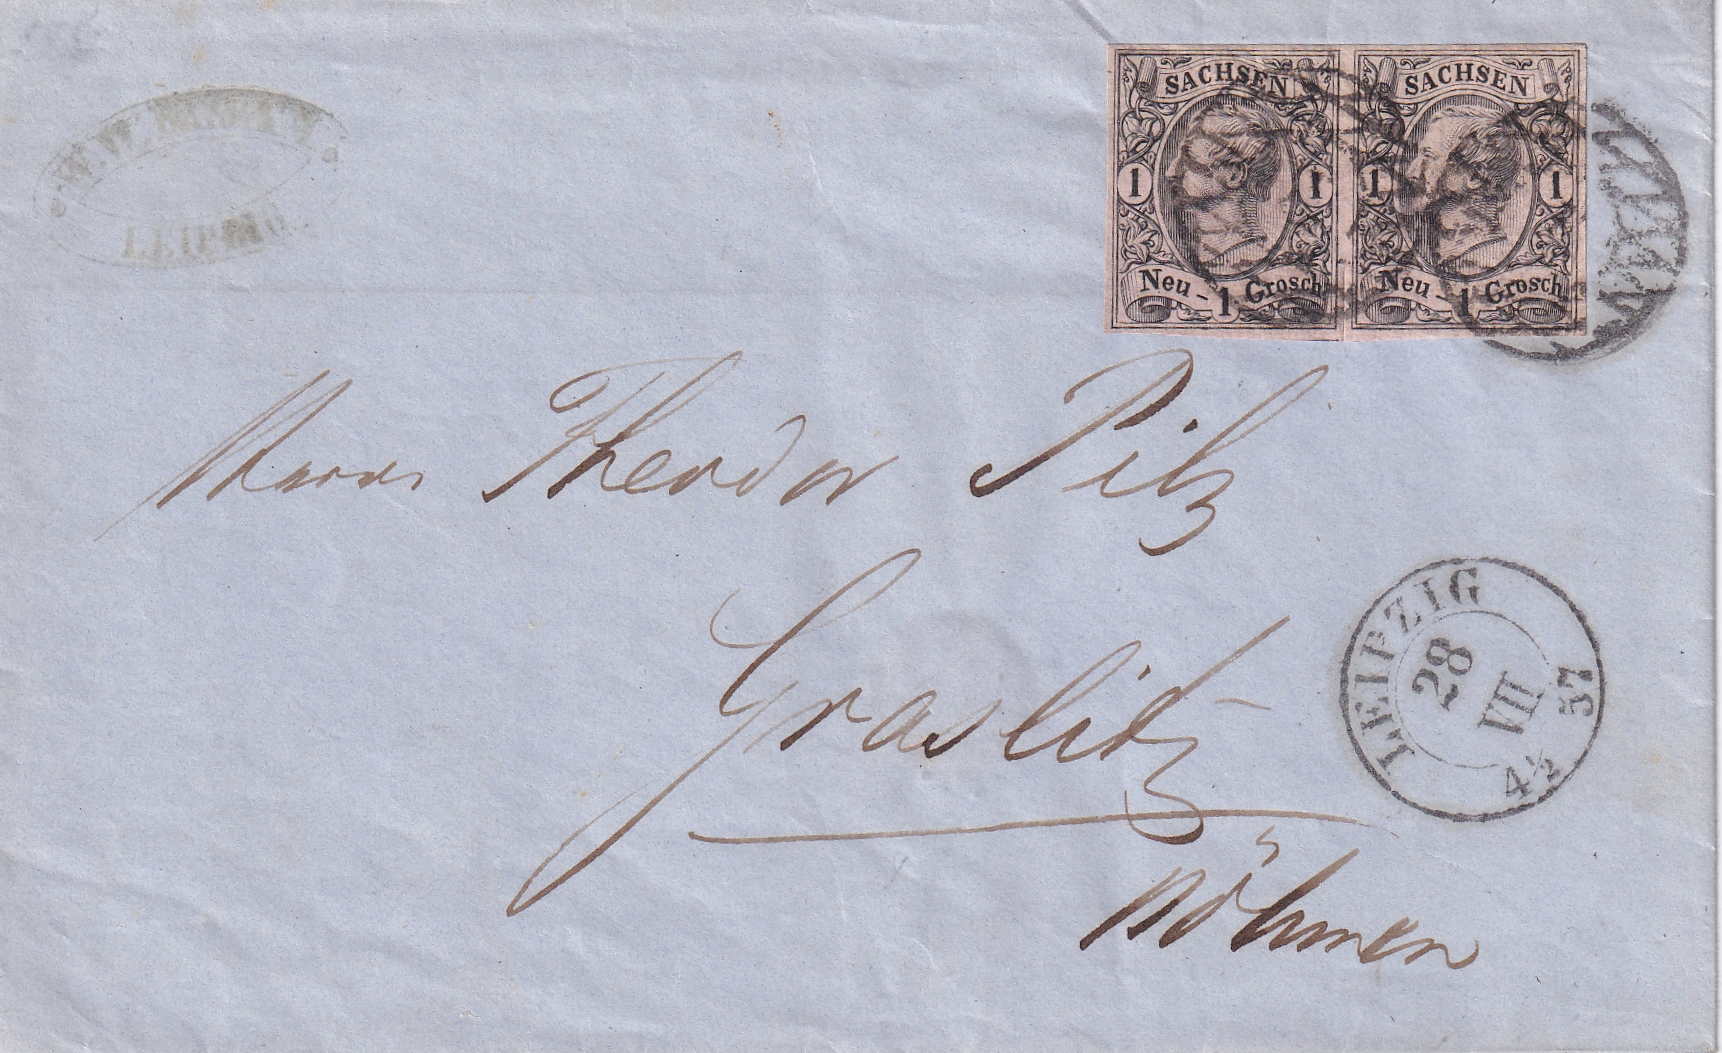 LEIPZIG
SACHSEN SACHSEN
1 1 1 1
Neu - 1 Grosch Neu - 1 Grosch
Theodor Pilz
Graslitz
Böhmen
LEIPZIG
28
VII
4½
57